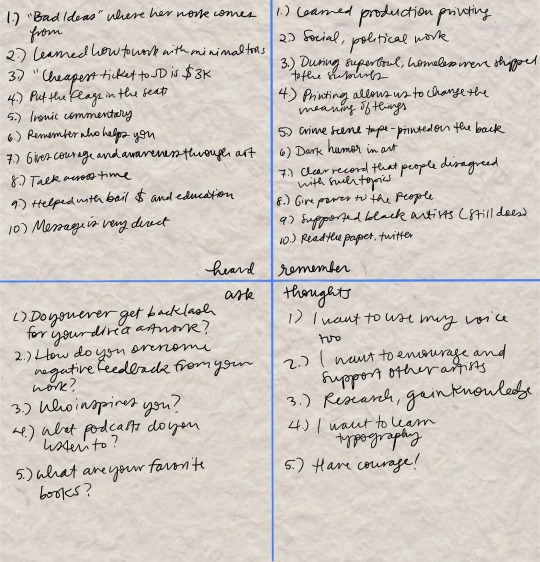 1.) "Bad Ideas" where her work comes
from
2.) Learned how to work with minimal tools
3.) "Cheapest ticket to SD is $3K
4.) Put the flags in the seats
5.) Ironic commentary
6.) Remember who helps you
7.) Gives courage and awareness through art
8.) Talk across time
9.) Helped with bail $ and education
10.) Message is very direct
heard
1.) Learned production printing
2.) Social, political work
3.) During superbowl, homeless were shipped
to the suburbs
4.) Printing allows us to change the
meaning of things
5.) Crime scene tape - printed on the back
6.) Dark humor in art
7.) Clear record that people disagreed
with such topics
8.) Give power to the People
9.) Supported black artists (still does)
10.) Read the paper, twitter
remember
ask
1.) Do you ever get backlash
for your direct artwork?
2.) How do you overcome
negative feedback from your
work?
3.) Who inspires you?
4.) what podcasts do you
listen to?
5.) what are your favorite
books?
thoughts
1) I want to use my voice
too
2.) I want to encourage and
support other artists
3.) Research, gain knowledge
4.) I want to learn
typography
5.) Have courage!